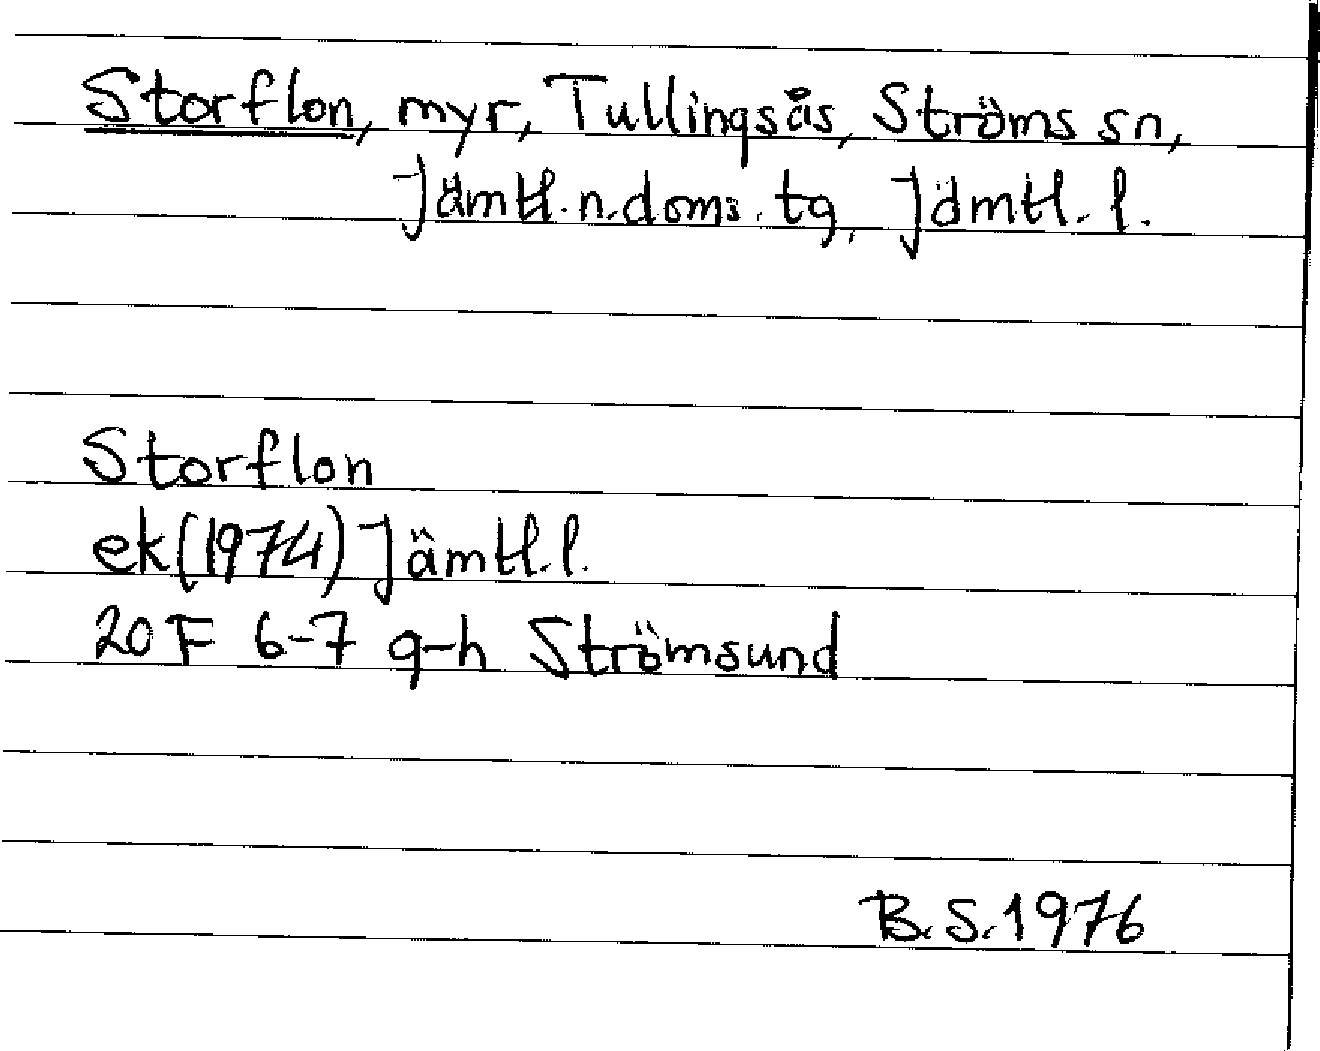 Storflon, myr, Tullingsås, Ströms sn,
Jämtl. n. doms. tg, Jämtl. l.
Storflon
ek (1974) Jämtl. l.
20 F 6-7 g-h Strömsund
B.S. 1976